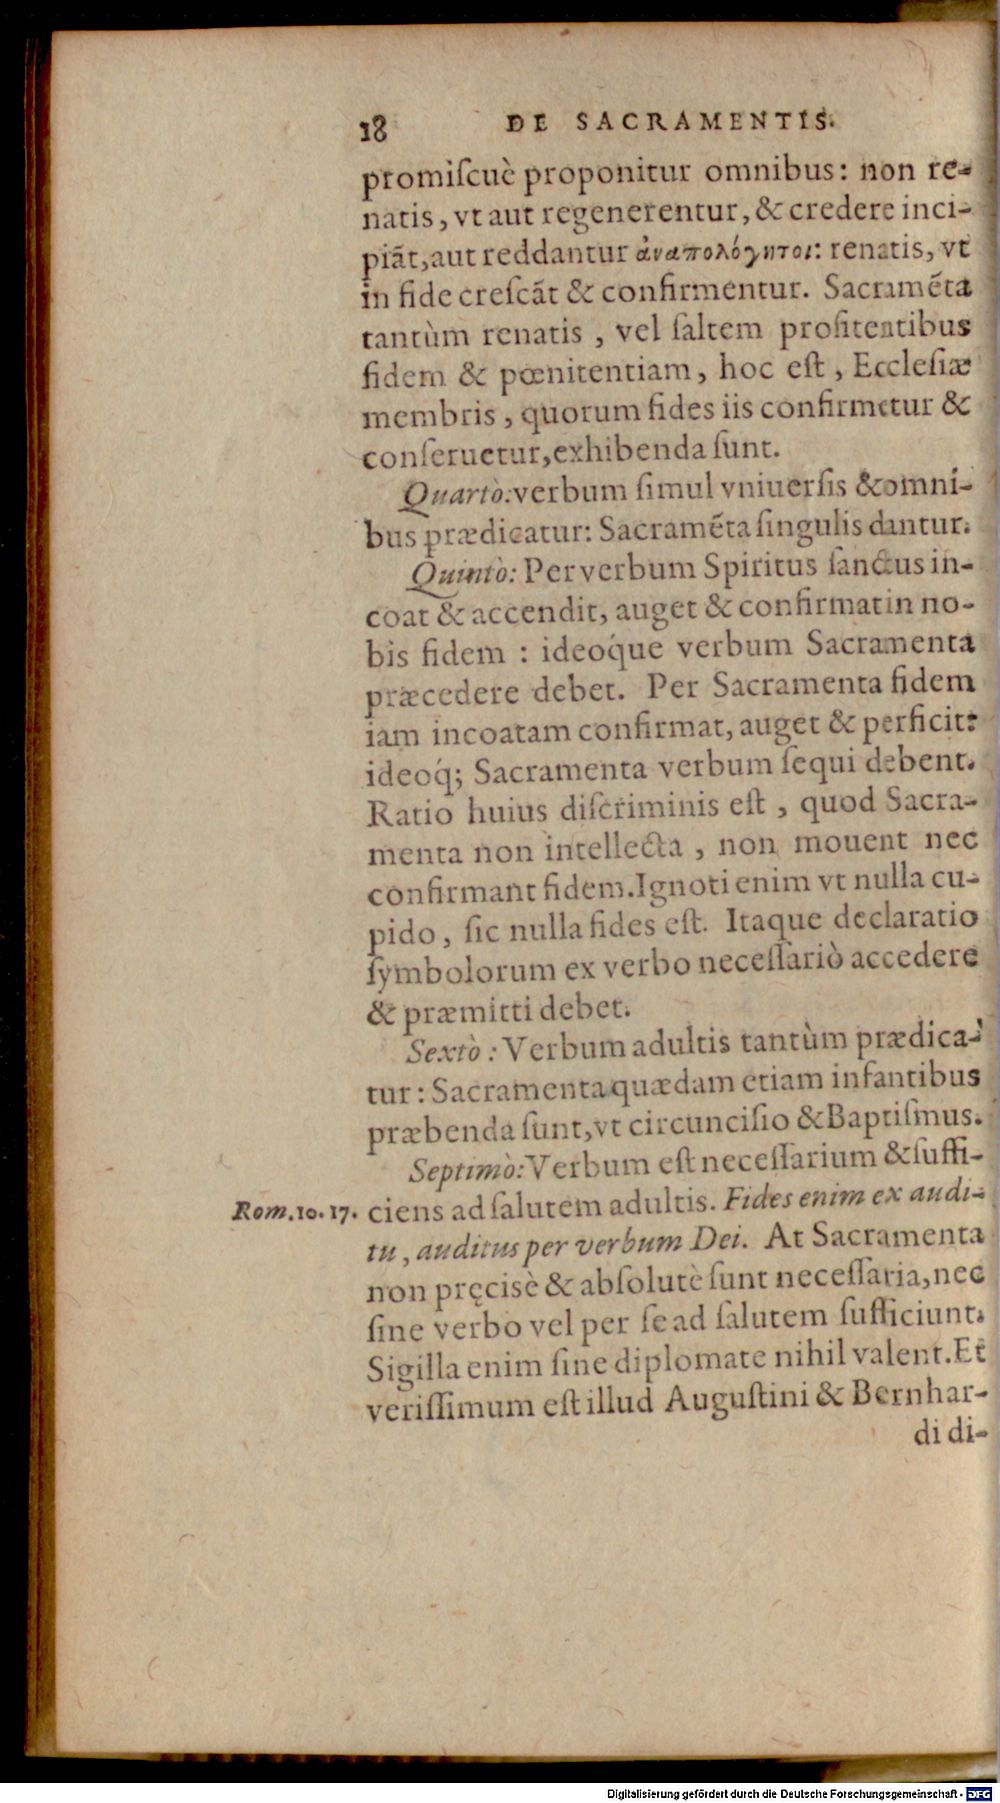 18 DE SACRAMENTIS.
promiſcuè proponitur omnibus: non re-
natis, vt aut regenerentur, & credere inci-
piãt, aut reddantur ἀναπολόγητοι: renatis, vt
in fide creſcãt & confirmentur. Sacramẽta
tantùm renatis, vel ſaltem profitentibus
fidem & pœnitentiam, hoc eſt, Eccleſiæ
membris, quorum fides iis confirmetur &
conſeruetur, exhibenda ſunt.
Quartò: verbum ſimul vniuerſis & omni-
bus prædicatur: Sacramẽta ſingulis dantur.
Quintò: Per verbum Spiritus ſanctus in-
coat & accendit, auget & confirmat in no-
bis fidem: ideóque verbum Sacramenta
præcedere debet. Per Sacramenta fidem
iam incoatam confirmat, auget & perficit:
ideoq́; Sacramenta verbum ſequi debent.
Ratio huius diſcriminis eſt, quod Sacra-
menta non intellecta, non mouent nec
confirmant fidem. Ignoti enim vt nulla cu-
pido, ſic nulla fides eſt. Itaque declaratio
ſymbolorum ex verbo neceſſariò accedere
& præmitti debet.
Sextò: Verbum adultis tantùm prædica-
tur: Sacramenta quædam etiam infantibus
præbenda ſunt, vt circunciſio & Baptiſmus.
Septimò: Verbum eſt neceſſarium & ſuffi-
Rom. 10. 17. ciens ad ſalutem adultis. Fides enim ex audi-
tu, auditus per verbum Dei. At Sacramenta
non pręcisè & abſolutè ſunt neceſſaria, nec
ſine verbo vel per ſe ad ſalutem ſufficiunt.
Sigilla enim ſine diplomate nihil valent. Et
veriſſimum eſt illud Auguſtini & Bernhar-
di di-
Digitalisierung gefördert durch die Deutsche Forschungsgemeinschaft - DFG